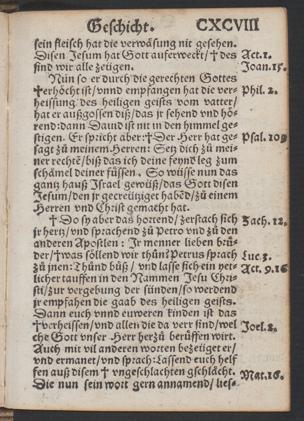 Geschicht. CXCVIII
sein fleisch hat die verwäsung nit gesehen.
Disen Jesum hat Gott auferweckt/ † des Act.1.
sind wir alle zeügen. Joan.15.
Nün so er durch die gerechten Gottes
† erhöcht ist/ vnnd empfangen hat die ver- Phil. 2.
heissung des heiligen geists vom vatter/
hat er außgossen diß/ das jr sehend vnd hö-
rend: dann Dauid ist nit in den himmel ge-
stigen. Er spricht aber: † Der Herr hat ge- Psal. 109
sagt zů meinem Herren: Setz dich zů mei-
ner rechtē/ biß das ich deine feynd leg zum
schämel deiner füssen. So wüsse nun das
gantz hauß Israel gewüß/ das Gott disen
Jesum/ den jr gecreütziget habēd/ zů einem
Herren vnd Christ gemacht hat.
† Do sy aber das hortend/ zerstach sich Zach. 12.
jr hertz/ vnd sprachend zů Petro vnd zů den
anderen Apostlen: Jr menner lieben brü-
der/ † was söllend wir thůn? Petrus sprach Luc. 3.
zů jnen: Thůnd bůß/ vnd lasse sich ein yet- Act. 9.16
licher tauffen in den Nammen Jesu Chri-
sti/ zur vergebung der sünden/ so werdend
jr empfahen die gaab des heiligen geists.
Dann euch vnnd euweren kinden ist das
† verheissen/ vnd allen die da verr sind/ wel Joel. 2.
che Gott vnser Herr herzů berüffen wirt.
Auch mit vil anderen worten bezeüget er/
vnd ermanet/ vnd sprach: Lassend euch helf
fen auß disem † vngeschlachten gschlächt. Mat.16.
Die nun sein wort gern annamend/ lies-